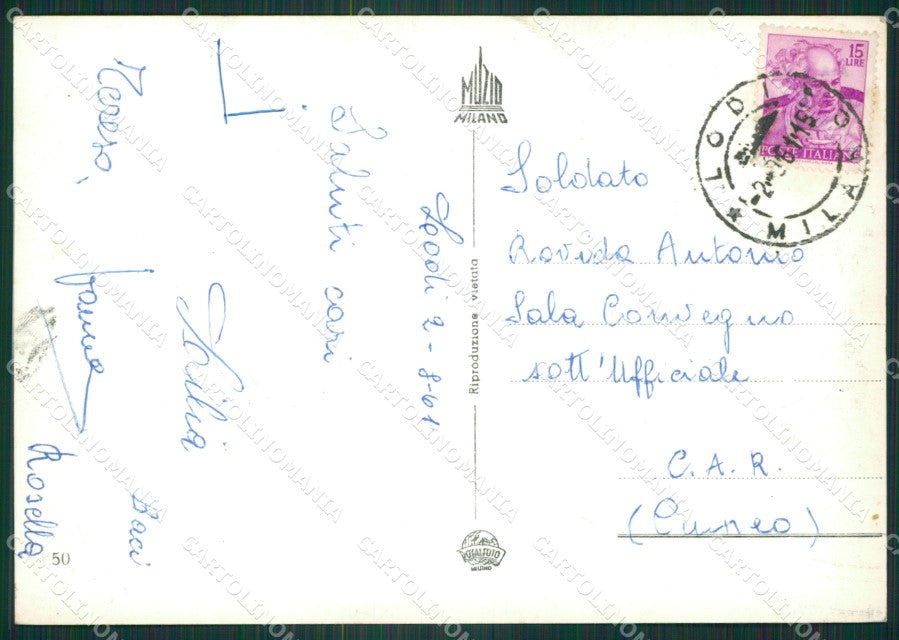 Lodi 2-8-61
Saluti cari
Lilia
Baci
Teresa,
Rosella
50
MUZIO
MILANO
Riproduzione vietata
MILANO
15
LIRE
POSTE ITALIANE
LODI
MILANO
Soldato
Rovida Antonio
Sala Convegno
sott'Ufficiale
C.A.R.
(Cuneo)
CARTOLINOMANIA